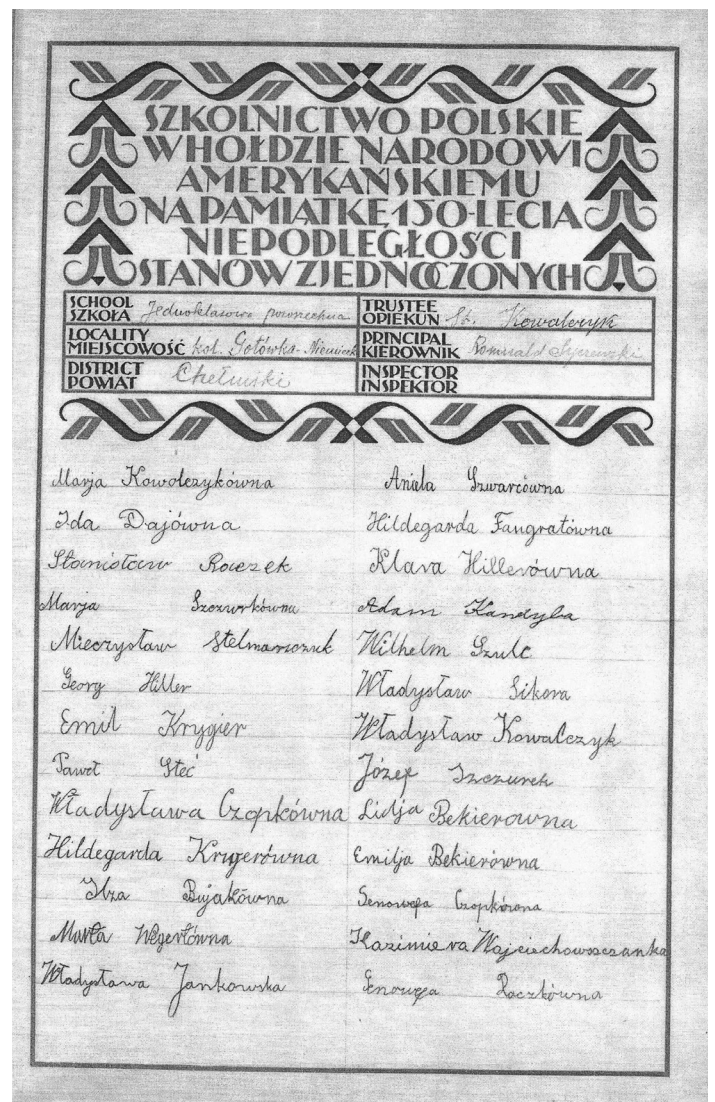 SZKOLNICTWO POLSKIE
W HOŁDZIE NARODOWI
AMERYKAŃSKIEMU
NA PAMIĄTKĘ 150-LECIA
NIEPODLEGŁOŚCI
STANÓW ZJEDNOCZONYCH
SCHOOL
SZKOŁA Jednoklasowa powszechna
TRUSTEE
OPIEKUN St. Kowalczyk
LOCALITY
MIEJSCOWOŚĆ kol. Gotówka-
PRINCIPAL
KIEROWNIK Romuald
DISTRICT
POWIAT Chełmski
INSPECTOR
INSPEKTOR
Marja Kowolczykówna
Ida Dajówna
Stanisław Raczek
Marja Szczurkówna
Mieczysław Stelmaszczuk
Georg Hiller
Emil Krygier
Paweł Steć
Władysława Czopkówna
Hildegarda Krygerówna
Ilza Bujakówna
Marta Wegertówna
Władysława Jankowska
Aniela Szwarcówna
Hildegarda Fangratówna
Klara Hillerówna
Adam Kandyba
Wilhelm Szulc
Władysław Sikora
Władysław Kowalczyk
Józef Szczurek
Lidja Bekierowna
Emilja Bekierówna
Genowefa Czopkówna
Kazimiera Wojciechowszczanka
Genowefa Raczkówna